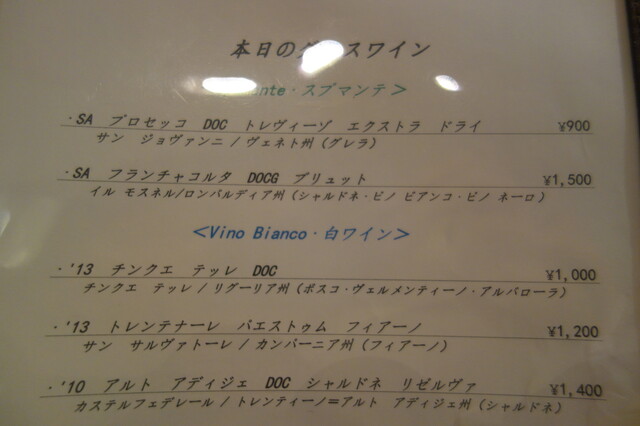 本日のグ スワイン
nte・スプマンテ＞
・SA プロセッコ DOC トレヴィーゾ エクストラ ドライ ¥900
サン ジョヴァンニ / ヴェネト州 (グレラ)
・SA フランチャコルタ DOCG ブリュット ¥1,500
イル モスネル/ロンバルディア州 (シャルドネ・ピノ ビアンコ・ピノ ネーロ)
＜Vino Bianco・白ワイン＞
・'13 チンクエ テッレ DOC ¥1,000
チンクエ テッレ / リグーリア州 (ボスコ・ヴェルメンティーノ・アルバローラ)
・'13 トレンテナーレ パエストゥム フィアーノ ¥1,200
サン サルヴァトーレ / カンパーニア州 (フィアーノ)
・'10 アルト アディジェ DOC シャルドネ リゼルヴァ ¥1,400
カステルフェデレール / トレンティーノ＝アルト アディジェ州 (シャルドネ)